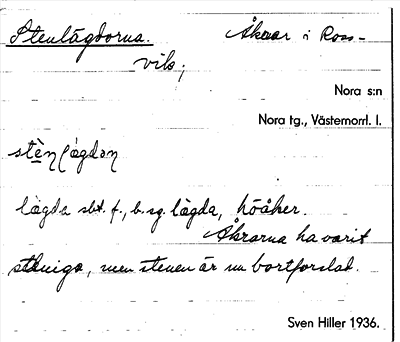 Stenlägdorna. Åkrar i Ross-
vik;
Nora s:n
Nora tg., Västernorrl. l.
stèn lägdan
lägda sbt. f., b. sg. lägda, höåker.
Åkrarna ha varit
steniga, men stenen är nu bortforslad.
Sven Hiller 1936.